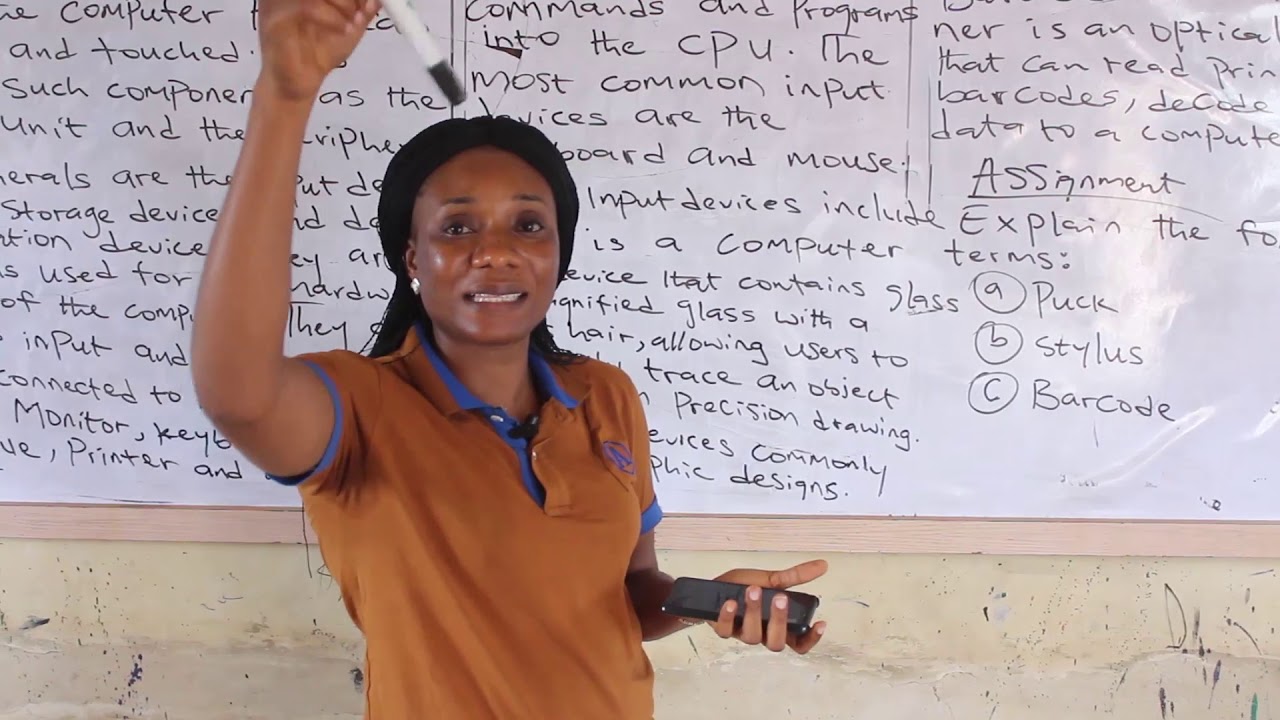 the computer
and touched.
Such componen as the
Unit and the
are the
Storage device
device
used for hardw
of the They
input and
connected to
Monitor,
Printer and
Commands and Programs
into the CPU. The
most common input
devices are the
board and mouse.
Input devices include
is a computer
device that contains glass
glass with a
hair, allowing users to
trace an object
Precision drawing.
commonly
designs.
ner is an optical
that can read prin
barcodes, decode
data to a compute
Assignment
Explain the fo
terms:
(a) Puck
(b) Stylus
(c) Barcode